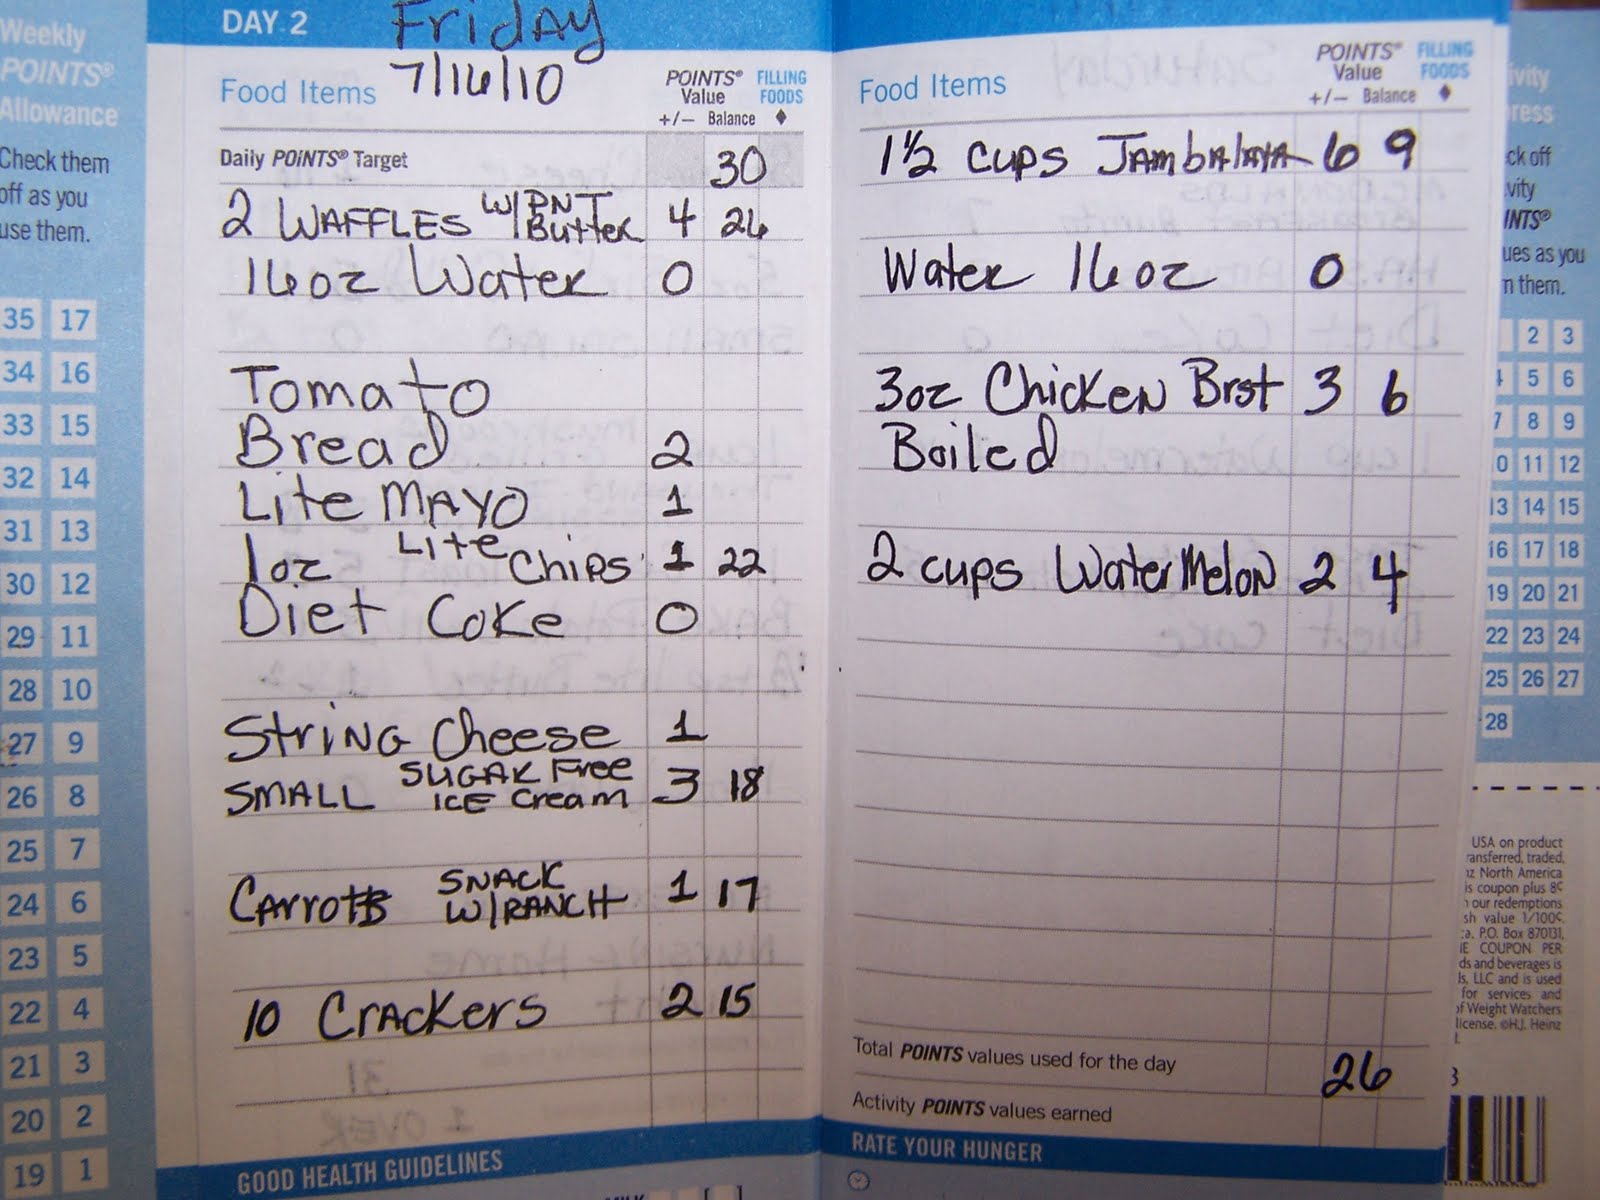 Weekly
POINTS®
Allowance
Check them
off as you
use them.
35 17
34 16
33 15
32 14
31 13
30 12
29 11
28 10
27 9
26 8
25 7
24 6
23 5
22 4
21 3
20 2
19 1
DAY 2 Friday
7/16/10
Food Items POINTS® Value +/− Balance FILLING FOODS ♦
Daily POINTS® Target 30
2 WAFFLES W/PNT Butter 4 26
16oz Water 0
Tomato
Bread 2
Lite MAYO 1
1oz Lite Chips 1 22
Diet Coke 0
String Cheese 1
SMALL SUGAR Free ICE Cream 3 18
Carrots SNACK W/RANCH 1 17
10 Crackers 2 15
GOOD HEALTH GUIDELINES
Food Items POINTS® Value +/− Balance FILLING FOODS ♦
1½ cups Jambalaya 6 9
Water 16oz 0
3oz Chicken Brst 3 6
Boiled
2 cups WaterMelon 2 4
Total POINTS values used for the day 26
Activity POINTS values earned
RATE YOUR HUNGER
2 3
5 6
8 9
11 12
13 14 15
16 17 18
19 20 21
22 23 24
25 26 27
28
USA on product
transferred, traded,
North America
is coupon plus 8¢
our redemptions
sh value 1/100¢.
P.O. Box 870131,
COUPON PER
ds and beverages is
LLC and is used
for services and
of Weight Watchers
license. ©H.J. Heinz